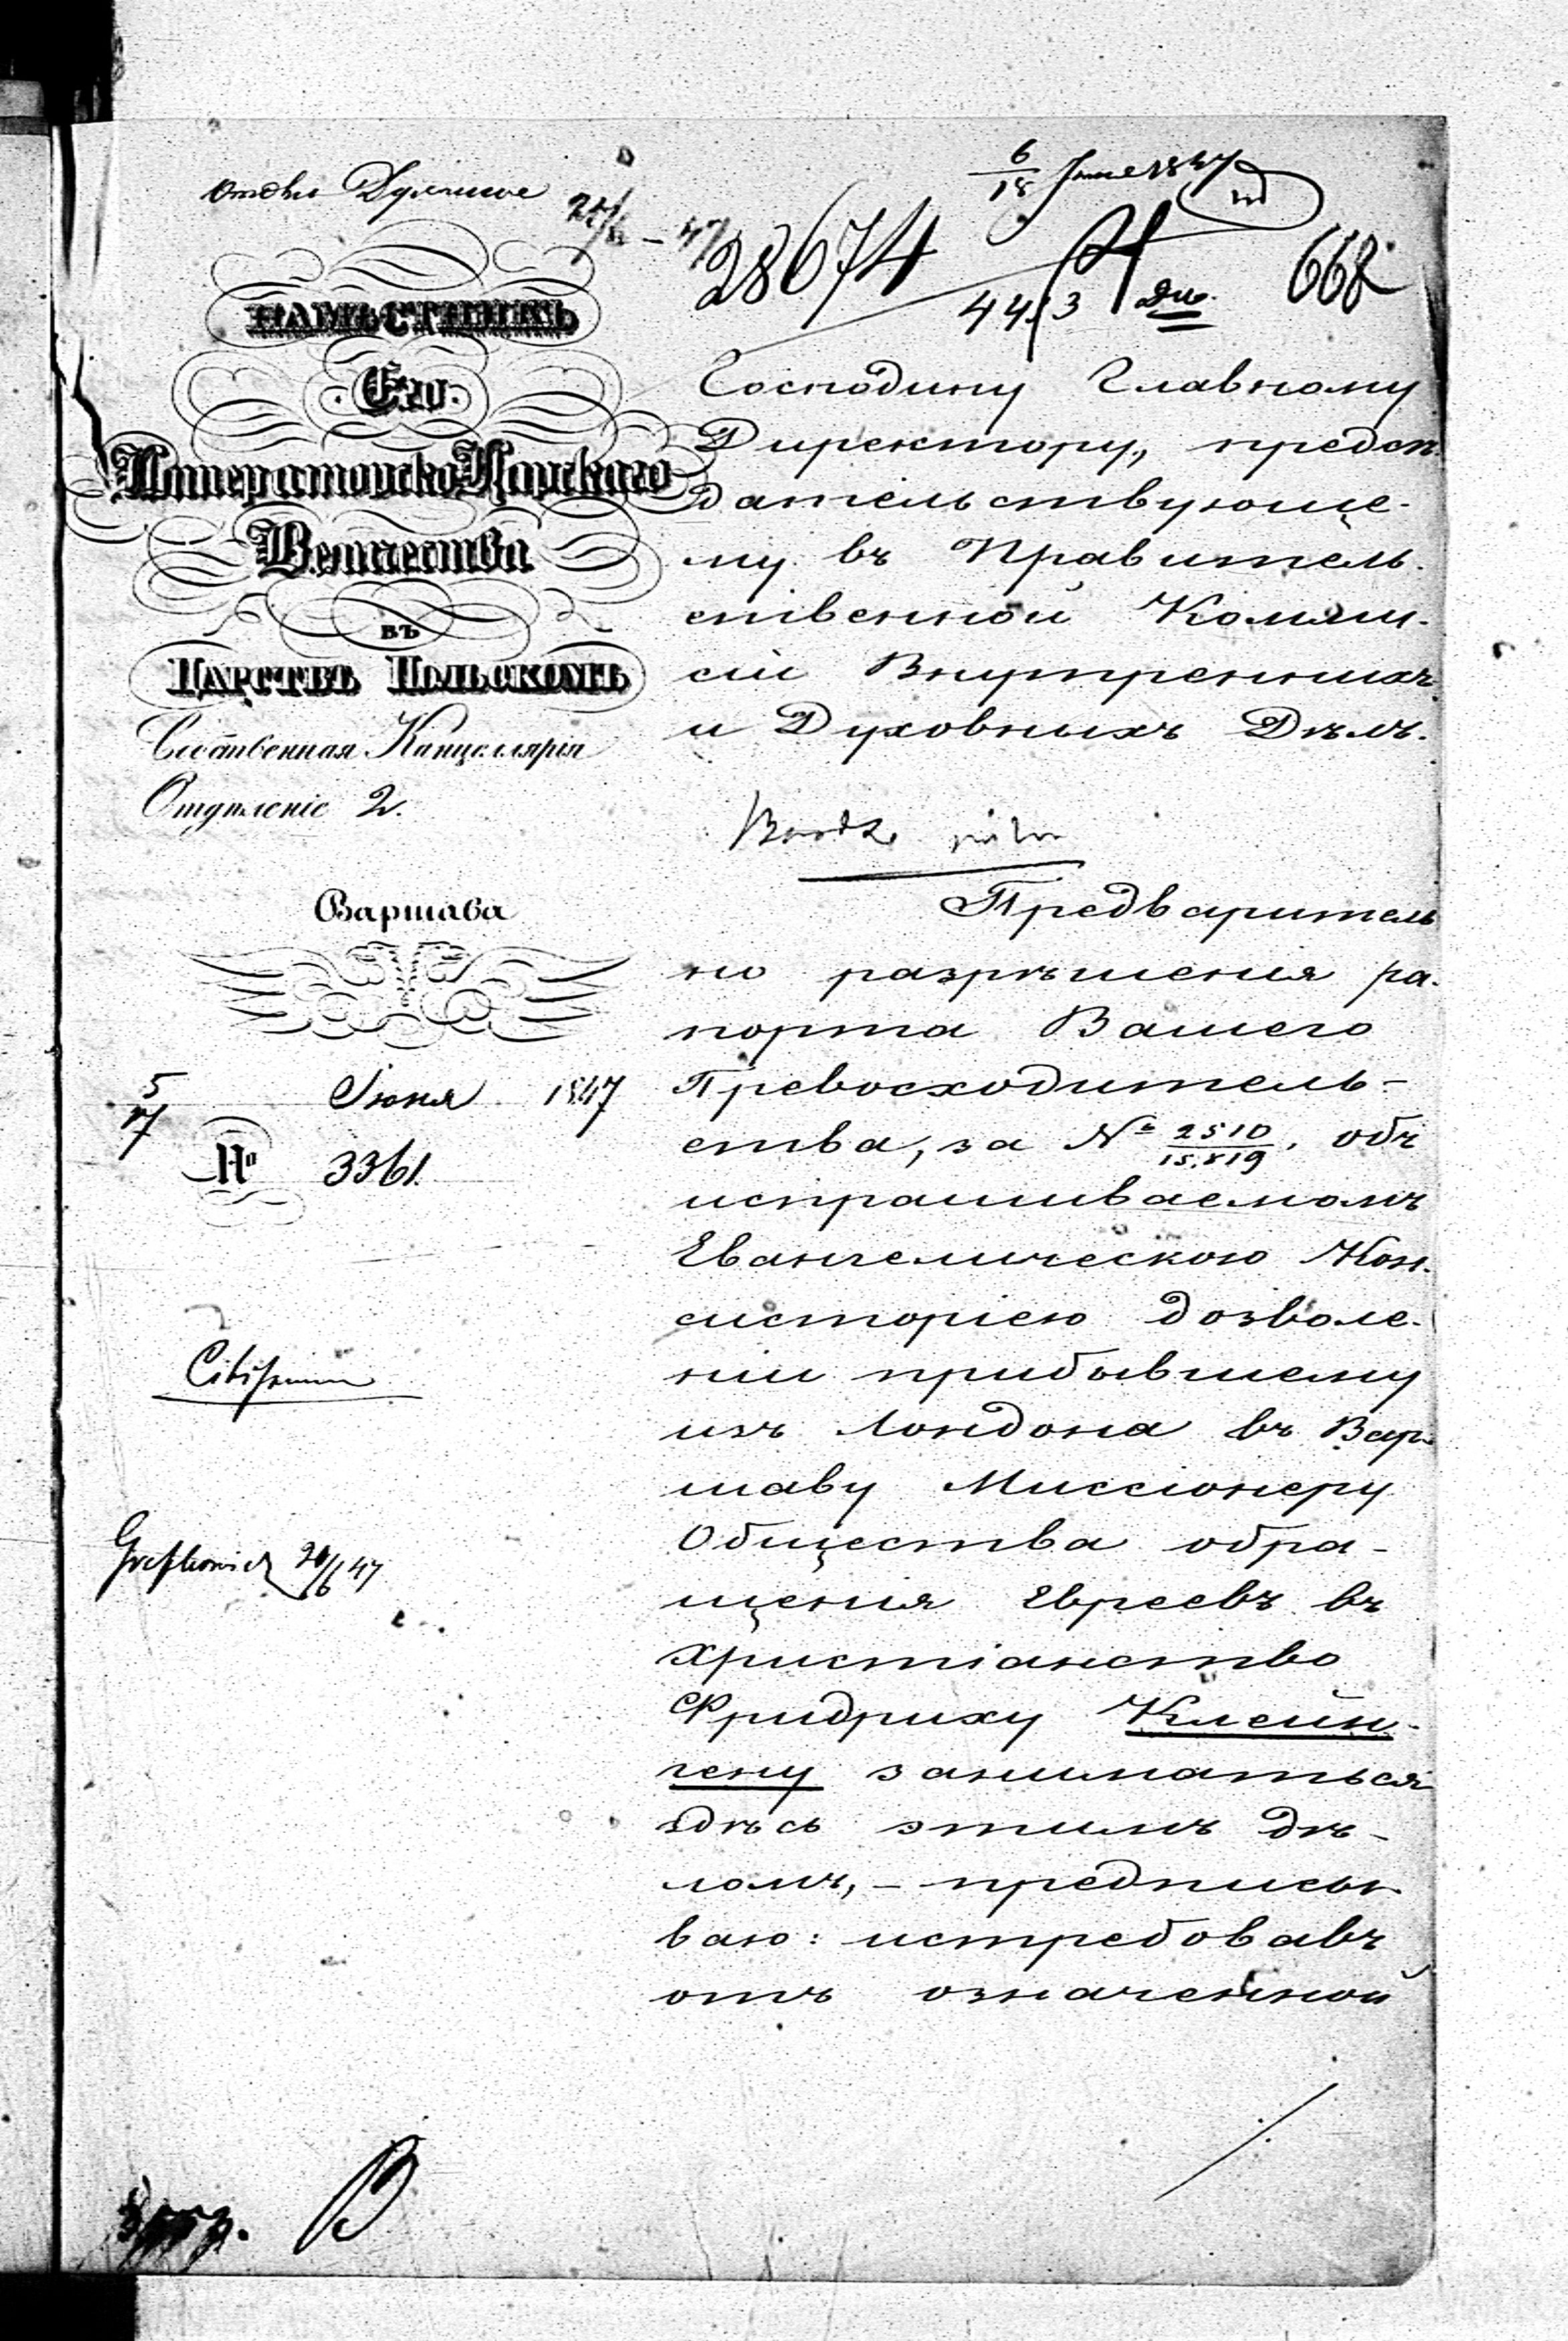 6/18 June 1847
28674
668
4423
НАМѢСТНИКЪ
Его
ИмператорскоЦарскаго
Величества
въ
ЦАРСТВѢ ПОЛЬСКОМЪ
Собственная Канцелярія
Отдѣленіе 2.
Варшава
5/17 Іюня 1847
№ 3361.
Господину Главному
Директору, предсѣ-
дательствующе-
му въ Правитель-
ственной Коммис-
сіи Внутреннихъ
и Духовныхъ Дѣлъ.
Предваритель
но разрѣшенія ра-
порта Вашего
Превосходитель-
ства, за № 2510/15,819, объ
испрашиваемомъ
Евангелическою Кон-
систоріею дозволе-
ніи прибывшему
изъ Лондона въ Вар-
шаву Миссіонеру
Общества обра-
щенія Евреевъ въ
Христіанство
Фридриху Клейн-
гену заниматься
здѣсь этимъ дѣ-
ломъ, - предписы-
ваю: истребовавъ
отъ означенной
20/6 47